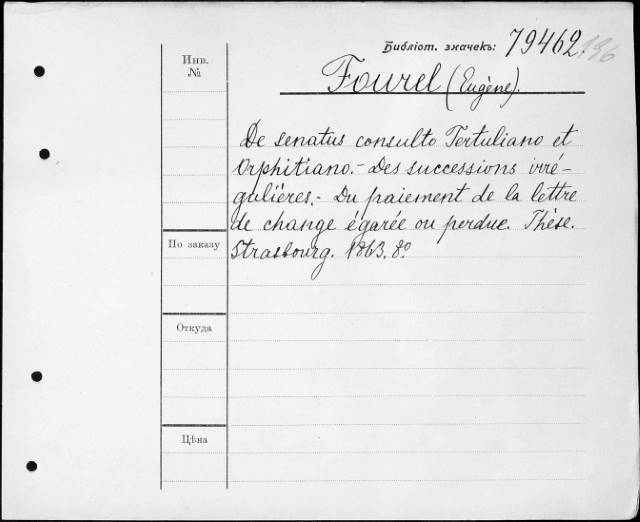 Библіот. значекъ: 79462.196
Инв.
№
Fourel (Eugène).
De senatus consulto Tertuliano et
Orphitiano. - Des successions irré-
gulières. - Du paiement de la lettre
de change égarée ou perdue. Thèse.
Strasbourg. 1863. 8º
По заказу
Откуда
Цѣна